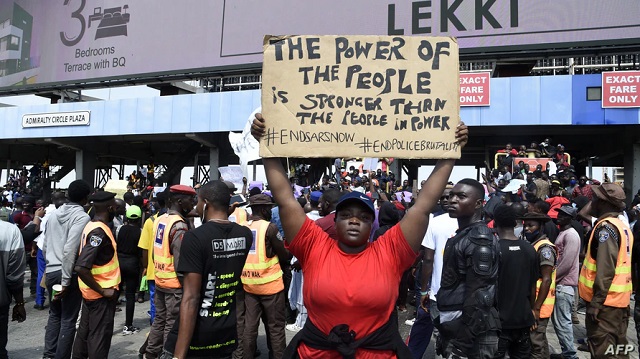 3
Bedrooms
Terrace with BQ
LEKKI
ADMIRALTY CIRCLE PLAZA
EXACT
FARE
ONLY
EXACT FARE
ONLY
THE POWER OF
THE PEOPLE
iS STRONGER THAN
THE PEOPLE IN POWER
#ENDSARSNOW #ENDPOLICEBRUTALITY
DSMART
AFP